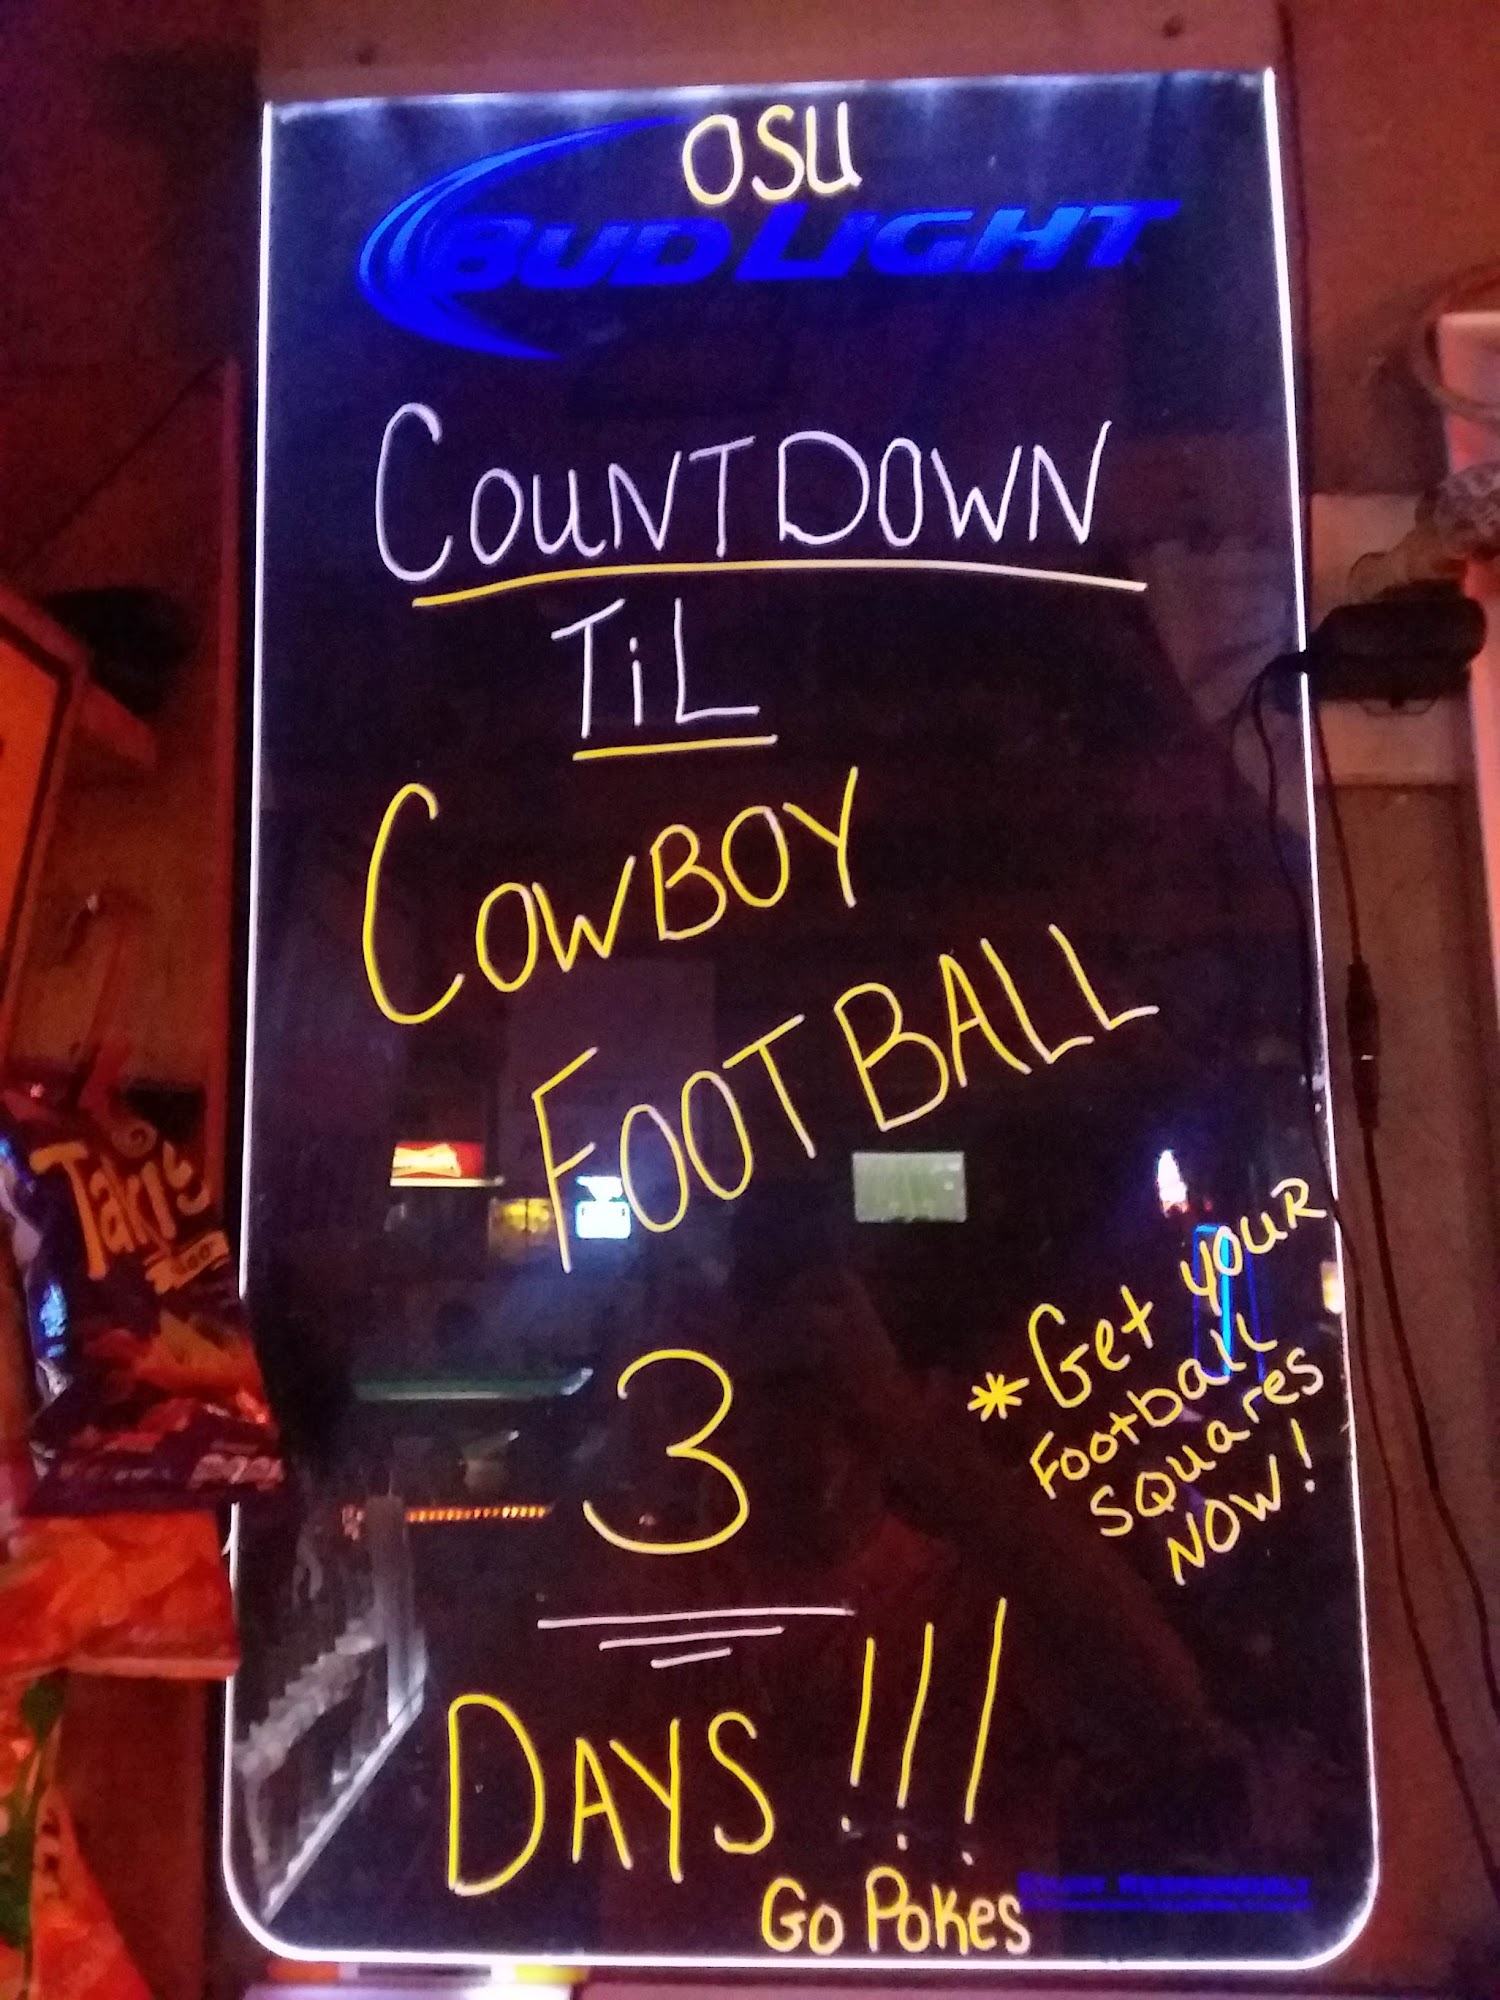 OSU
BUD LIGHT
COUNTDOWN
TiL
COWBOY
FOOTBALL
Takis
*Get your
Football
Squares
NOW!
3
DAYS!!!
Go Pokes
ENJOY RESPONSIBLY